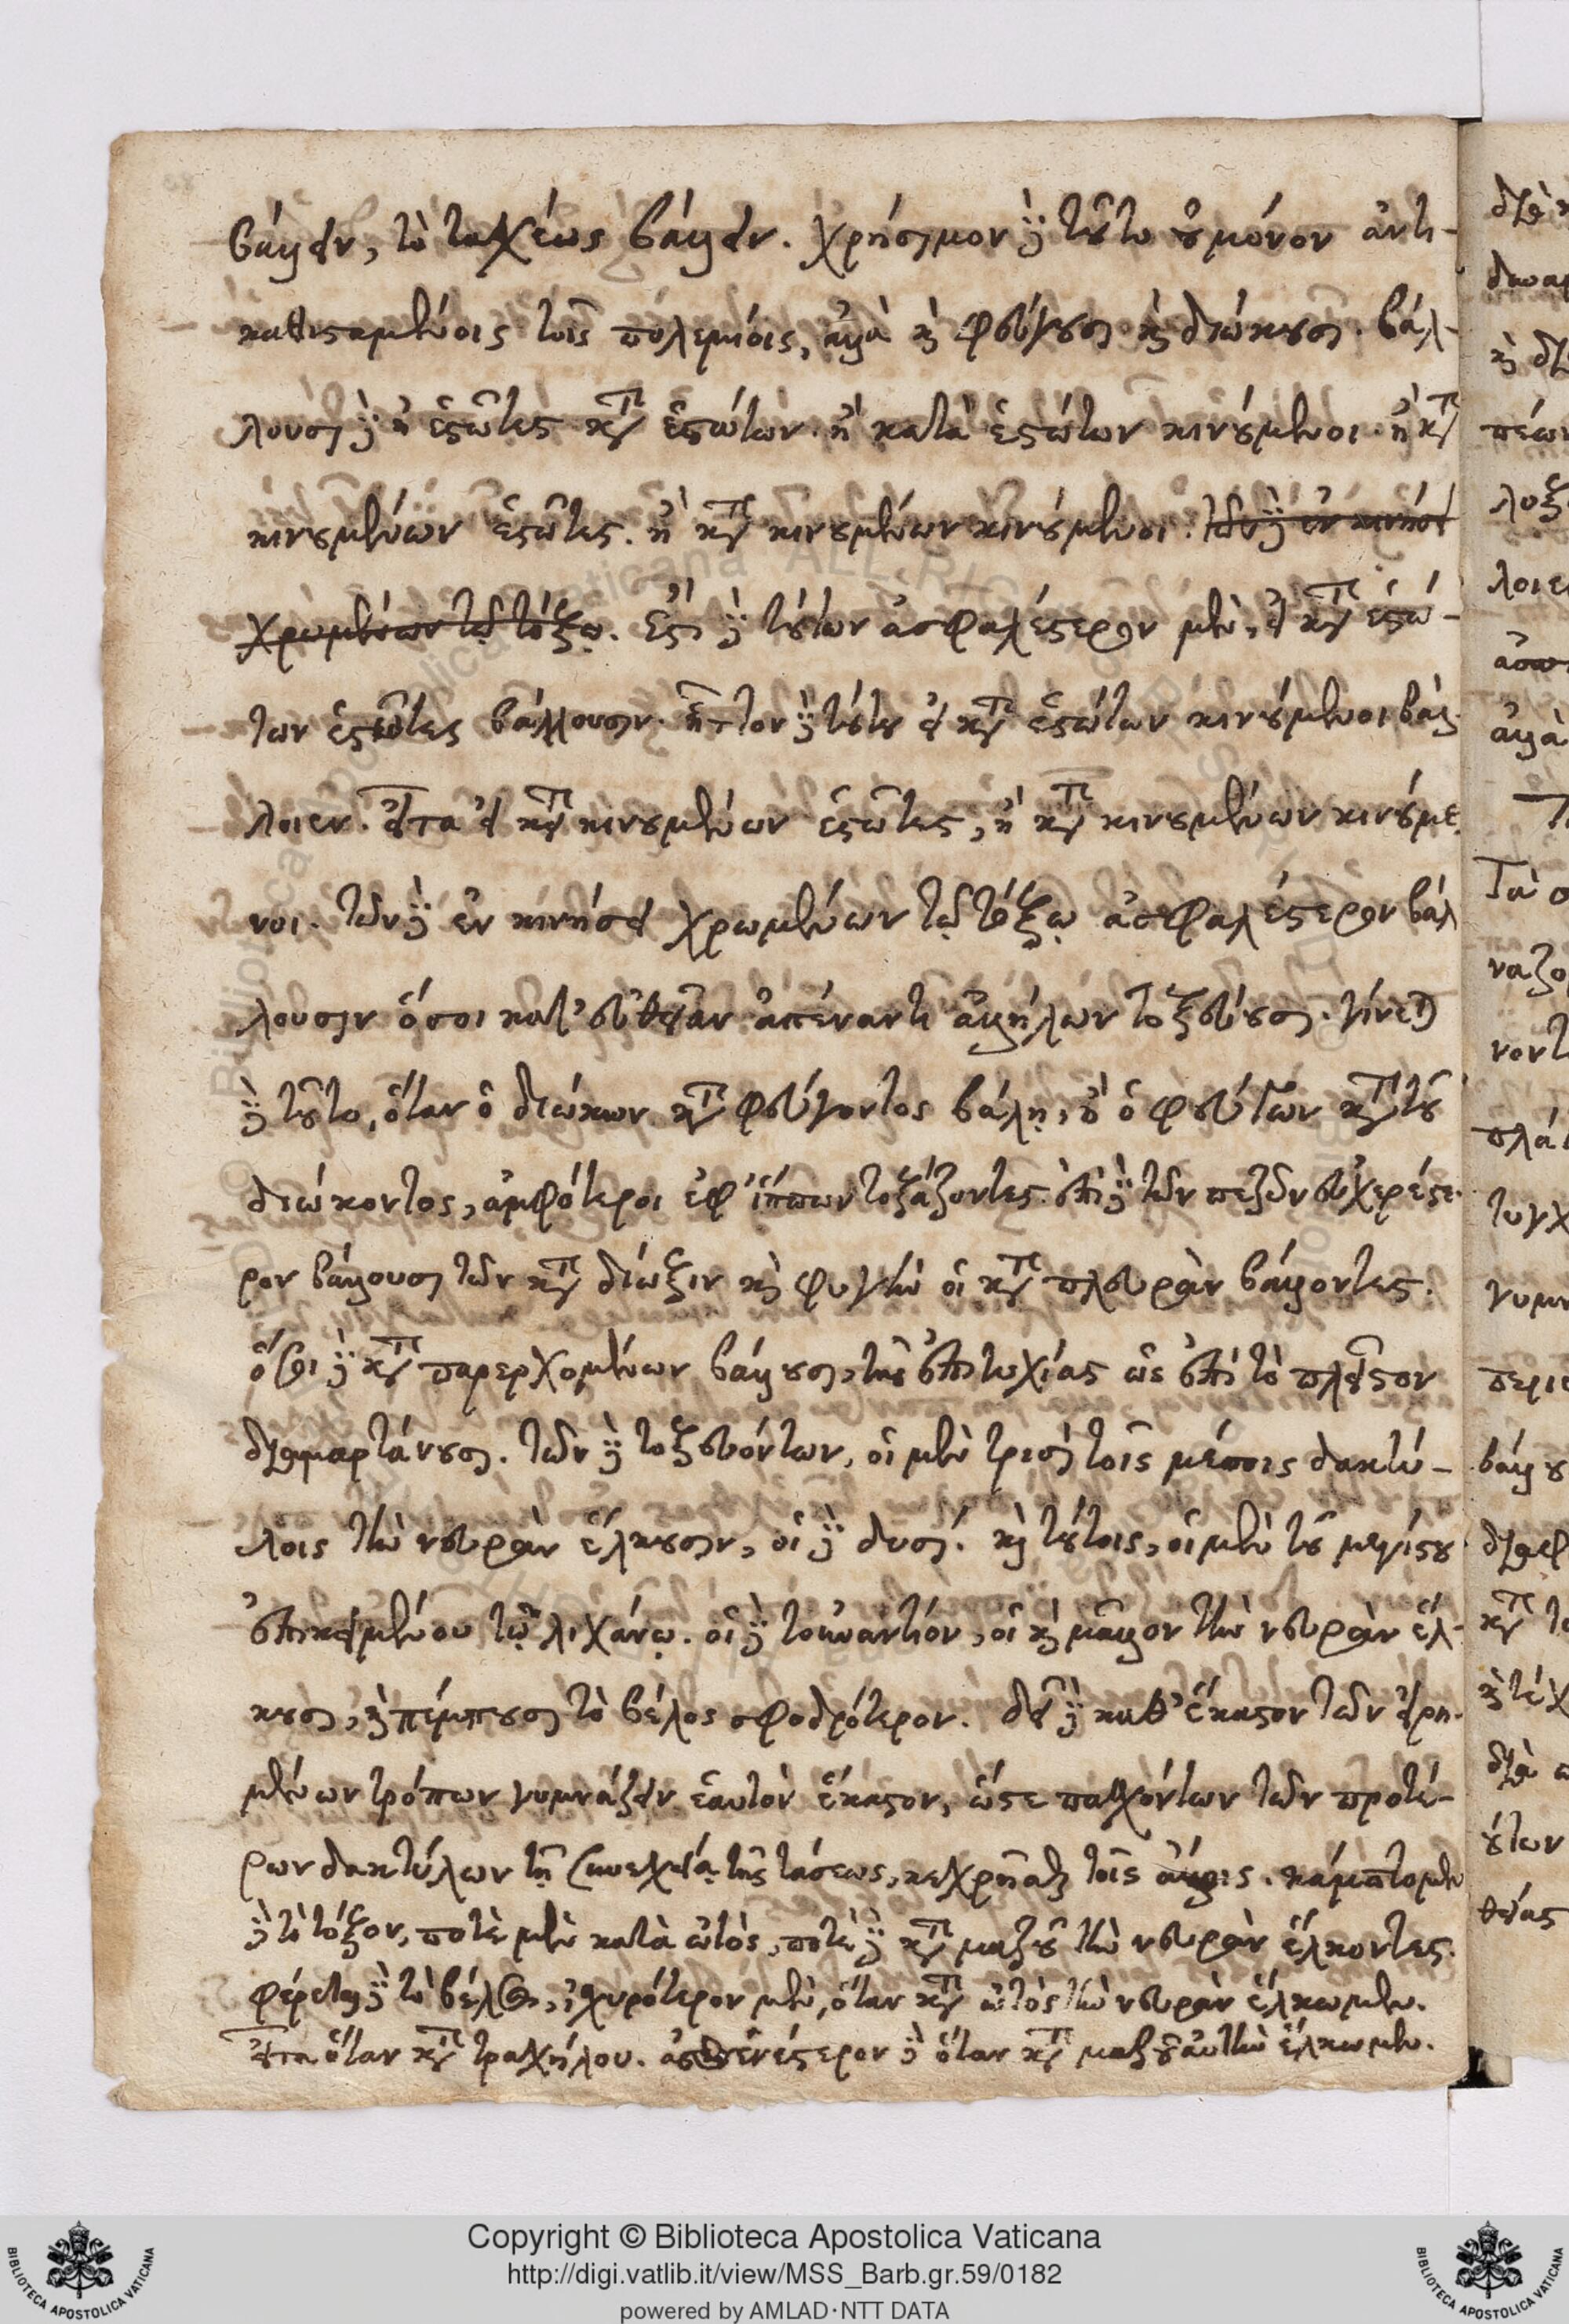 βάλλειν, τὸ ταχέως βάλλειν. χρήσιμον δὲ τοῦτο οὐ μόνον ἀντι-
καθισταμένοις τοῖς πολεμίοις, ἀλλὰ καὶ φεύγουσι καὶ διώκουσι. βάλ-
λουσι δὲ ἢ ἑστῶτες κατὰ ἑστώτων. ἢ κατὰ ἑστώτων κινούμενοι. ἢ κατὰ
κινουμένων ἑστῶτες. ἢ κατὰ κινουμένων κινούμενοι. τῶν δὲ ἐν κινήσει
χρωμένων τῷ τόξῳ. ἔστι δὲ τούτων ἀσφαλέστερον μὲν, εἰ κατὰ ἑστώ-
των ἑστῶτες βάλλουσιν. ἧττον δὲ τούτου εἰ κατὰ ἑστώτων κινούμενοι βάλ-
λοιεν. εἶτα εἰ κατὰ κινουμένων ἑστῶτες, ἢ κατὰ κινουμένων κινούμε
νοι. τῶν δὲ ἐν κινήσει χρωμένων τῷ τόξῳ ἀσφαλέστερον βάλ
λουσιν ὅσοι κατ' εὐθεῖαν ἀπέναντι ἀλλήλων τοξεύουσι. γίνεται
δὲ τοῦτο, ὅταν ὁ διώκων κατὰ φεύγοντος βάλῃ, ἢ ὁ φεύγων κατὰ τοῦ
διώκοντος, ἀμφότεροι ἐφ' ἵππων τοξάζοντες. ἐπὶ δὲ τῶν πεζῶν εὐχερέστε-
ρον βάλλουσι τῶν κατὰ δίωξιν καὶ φυγὴν οἱ κατὰ πλευρὰν βάλλοντες.
ὅσοι δὲ κατὰ παρερχομένων βάλλουσι, τῆς ἐπιτυχίας ὡς ἐπὶ τὸ πλεῖστον
διαμαρτάνουσι. τῶν δὲ τοξευόντων, οἱ μὲν τρισὶ τοῖς μέσοις δακτύ-
λοις τὴν νευρὰν ἕλκουσιν, οἱ δὲ δυσί. καὶ τούτοις, οἱ μὲν τοῦ μεγίστου
ἐπικειμένου τῷ λιχάνῳ. οἱ δὲ τοὐναντίον, οἳ καὶ μᾶλλον τὴν νευρὰν ἕλ-
κουσι, καὶ πέμπουσι τὸ βέλος σφοδρότερον. δεῖ δὲ καθ' ἕκαστον τῶν εἰρη-
μένων τρόπων γυμνάζειν ἑαυτὸν ἕκαστον, ὥστε πασχόντων τῶν προτέ-
ρων δακτύλων τῇ συνεχείᾳ τῆς τάσεως, κεχρῆσθαι τοῖς ἄλλοις. κάμπτομεν
δὲ τὸ τόξον, ποτὲ μὲν κατὰ ὠτὸς, ποτὲ δὲ κατὰ μαζοῦ τὴν νευρὰν ἕλκοντες.
φέρεται δὲ τὸ βέλος, ἰσχυρότερον μὲν, ὅταν κατὰ ὠτὸς τὴν νευρὰν ἕλκωμεν.
εἶτα ὅταν κατὰ τραχήλου. ἀσθενέστερον δὲ ὅταν κατὰ μαζοῦ αὐτὴν ἕλκωμεν.
Copyright © Biblioteca Apostolica Vaticana
http://digi.vatlib.it/view/MSS_Barb.gr.59/0182
powered by AMLAD·NTT DATA
BIBLIOTECA APOSTOLICA VATICANA
BIBLIOTECA APOSTOLICA VATICANA